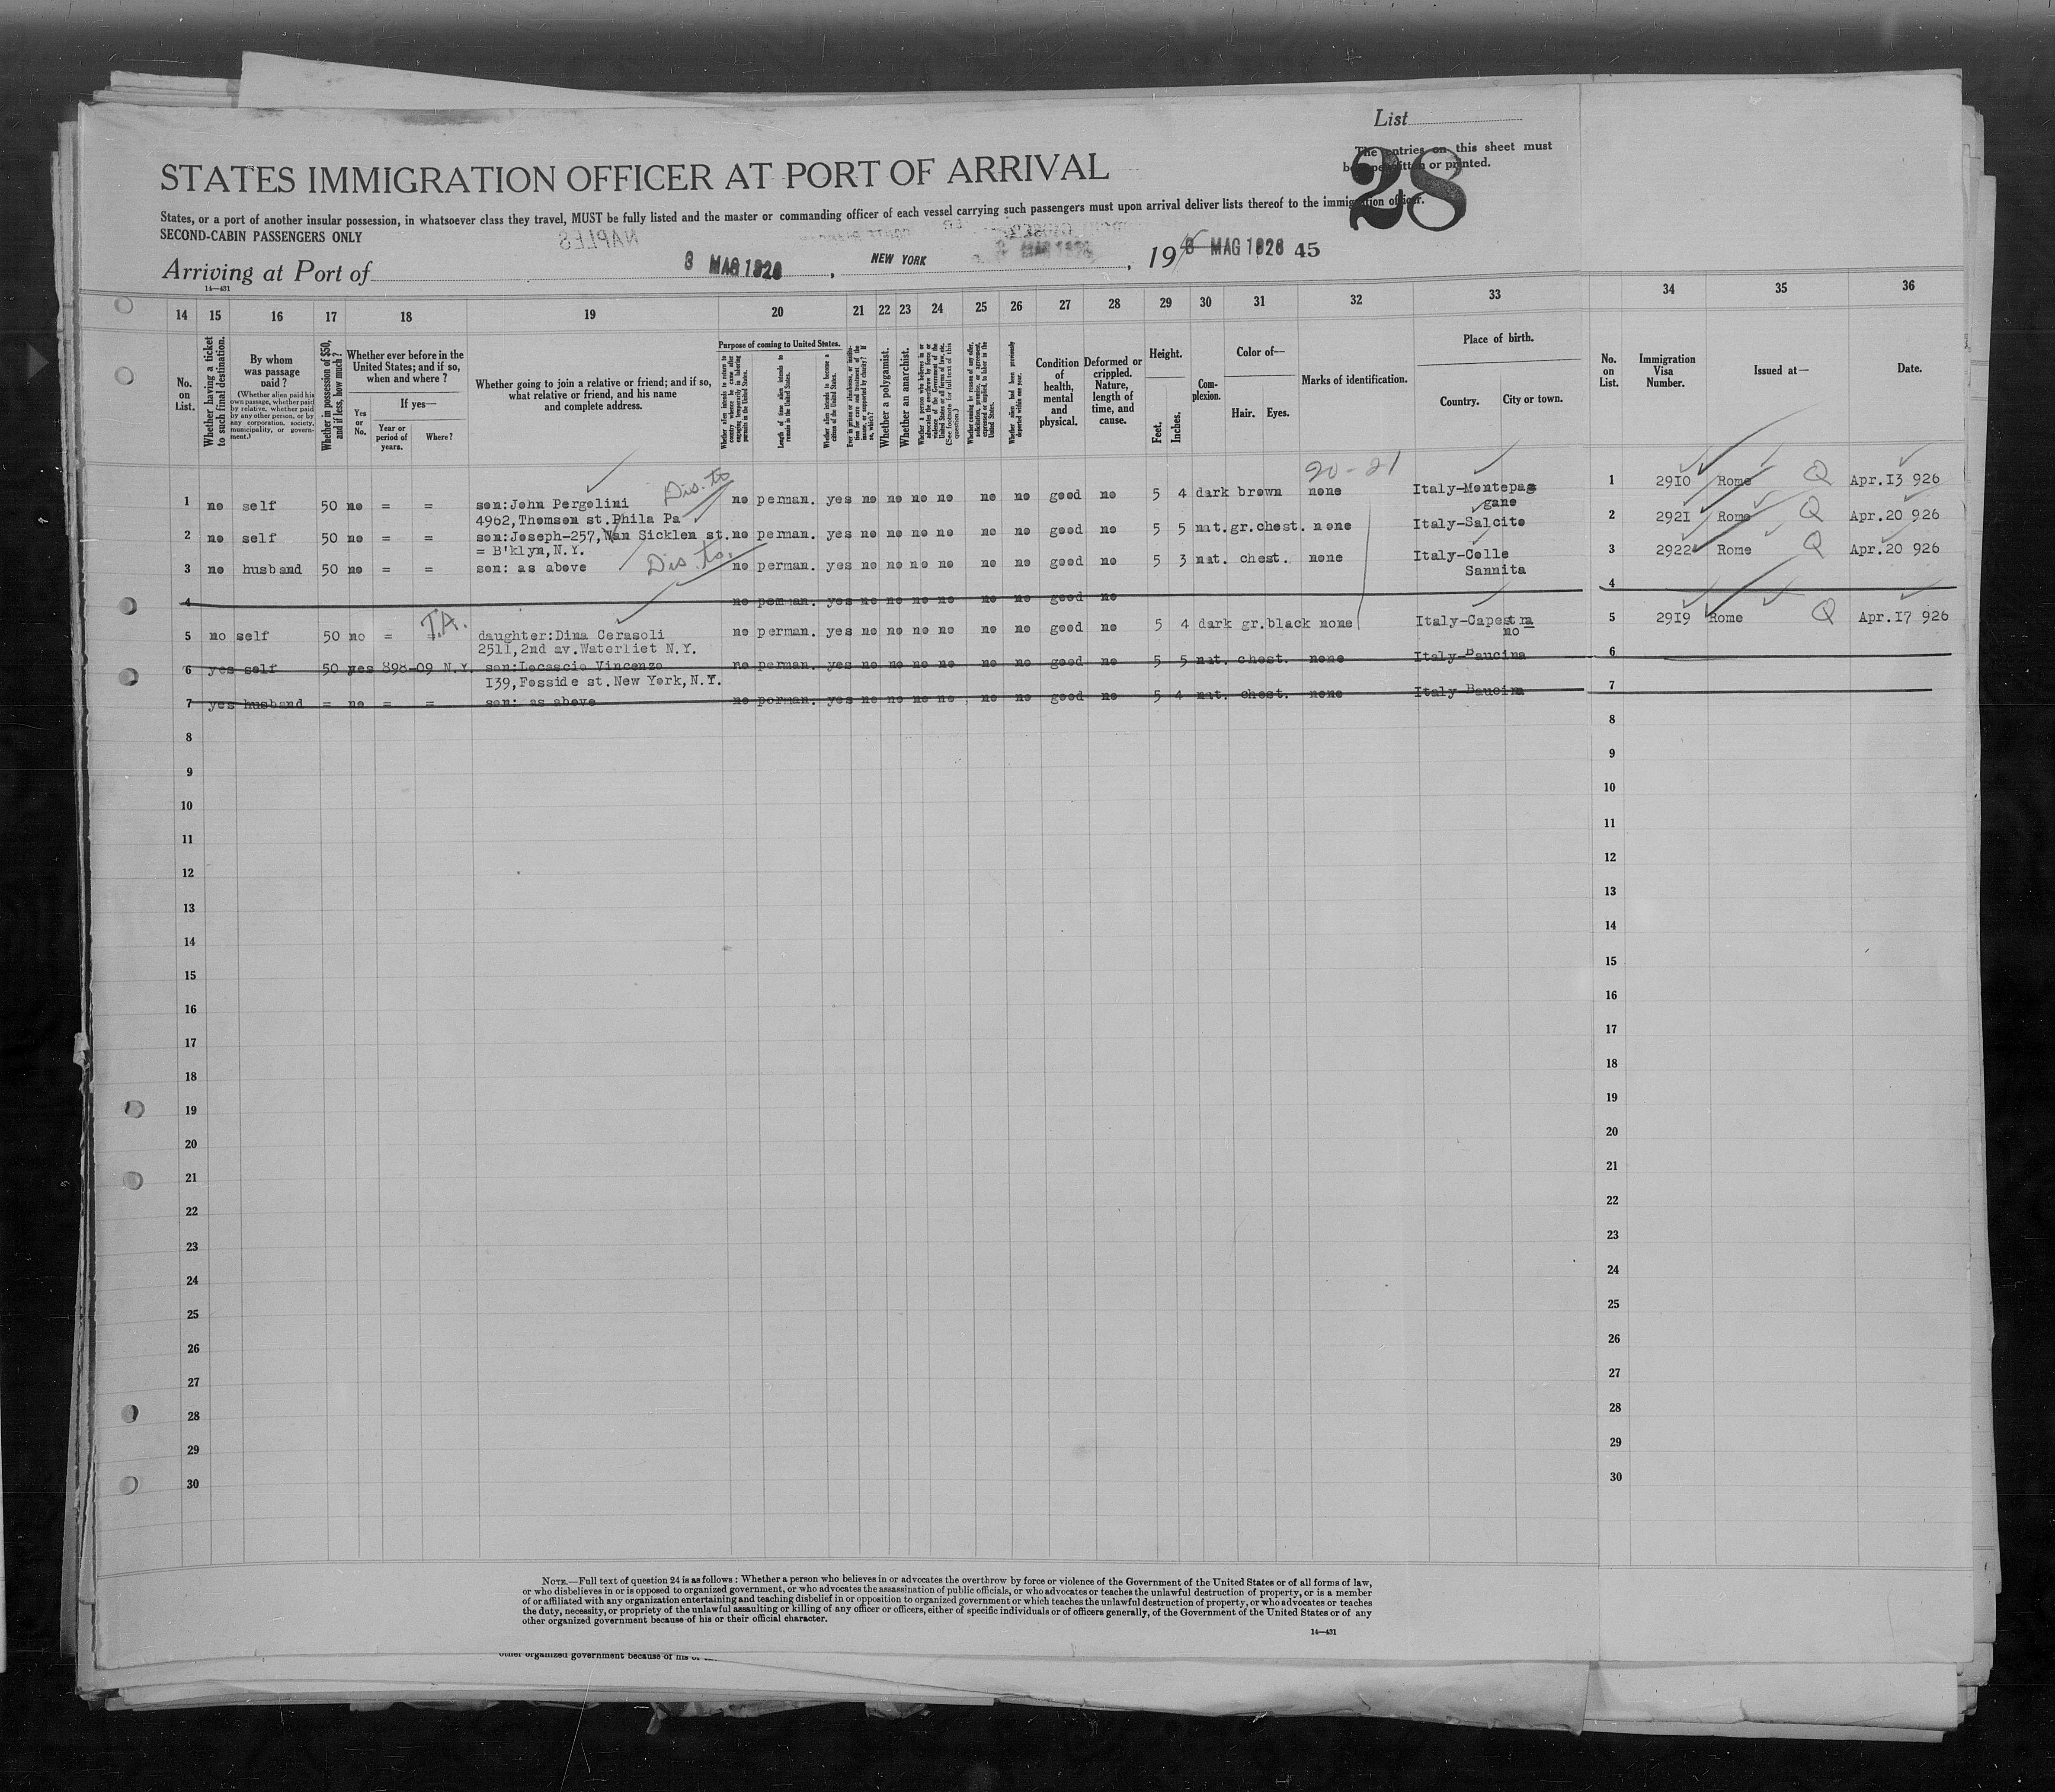 List
The entries on this sheet must
be typewritten or printed.
28
STATES IMMIGRATION OFFICER AT PORT OF ARRIVAL
States, or a port of another insular possession, in whatsoever class they travel, MUST be fully listed and the master or commanding officer of each vessel carrying such passengers must upon arrival deliver lists thereof to the immigration officer.
SECOND-CABIN PASSENGERS ONLY
NAPLES
Arriving at Port of 8 MAG 1926 , NEW YORK , 19 8 MAG 1926 45
14—431
14 15 16 17 18 19 20 21 22 23 24 25 26 27 28 29 30 31 32 33 34 35 36
No. on List.
Whether having a ticket to such final destination.
By whom was passage paid?
(Whether alien paid his own passage, whether paid by relative, whether paid by any other person, or by any corporation, society, municipality, or government.)
Whether in possession of $50, and if less, how much?
Whether ever before in the United States; and if so, when and where?
Yes or No.
If yes—
Year or period of years.
Where?
Whether going to join a relative or friend; and if so, what relative or friend, and his name and complete address.
Purpose of coming to United States.
Whether alien intends to return to country whence he came after engaging temporarily in laboring pursuits in the United States.
Length of time alien intends to remain in the United States.
Whether alien intends to become a citizen of the United States.
Ever in prison or almshouse, or institution for care and treatment of the insane, or supported by charity? If so, which?
Whether a polygamist.
Whether an anarchist.
Whether a person who believes in or advocates the overthrow by force or violence of the Government of the United States or all forms of law, etc. (See footnote for full text of this question.)
Whether coming by reason of any offer, solicitation, promise, or agreement, expressed or implied, to labor in the United States.
Whether alien had been previously deported within one year.
Condition of health, mental and physical.
Deformed or crippled. Nature, length of time, and cause.
Height.
Feet.
Inches.
Complexion.
Color of—
Hair.
Eyes.
Marks of identification.
Place of birth.
Country.
City or town.
No. on List.
Immigration Visa Number.
Issued at—
Date.
Dis. to 20-21
1 no self 50 no = = son:John Pergolini no perman. yes no no no no no no good no 5 4 dark brown none Italy-Montepag 1 2910 Rome Q Apr.13 926
4962,Thomson st.Phila Pa gano
2 no self 50 no = = son:Joseph-257,Van Sicklen st. no perman. yes no no no no no no good no 5 5 nat.gr.chest. none Italy-Salcito 2 2921 Rome Q Apr.20 926
= B'klyn,N.Y.
3 no husband 50 no = = son: as above Dis. to. no perman. yes no no no no no no good no 5 3 nat. chest. none Italy-Colle 3 2922 Rome Q Apr.20 926
Sannita
4 no perman. yes no no no no no no good no 4
T.A.
5 no self 50 no = = daughter:Dina Cerasoli no perman. yes no no no no no no good no 5 4 dark gr.black none Italy-Capestra 5 2919 Rome Q Apr.17 926
2511,2nd av.Waterliet N.Y. no
6 yes self 50 yes 898-09 N.Y. son:Locascio Vincenzo no perman. yes no no no no no no good no 5 5 nat. chest. none Italy-Baucina 6
139,Fosside st.New York,N.Y.
7 yes husband = no = = son: as above no perman. yes no no no no no no good no 5 4 nat. chest. none Italy Baucina 7
8 8
9 9
10 10
11 11
12 12
13 13
14 14
15 15
16 16
17 17
18 18
19 19
20 20
21 21
22 22
23 23
24 24
25 25
26 26
27 27
28 28
29 29
30 30
NOTE.—Full text of question 24 is as follows: Whether a person who believes in or advocates the overthrow by force or violence of the Government of the United States or of all forms of law,
or who disbelieves in or is opposed to organized government, or who advocates the assassination of public officials, or who advocates or teaches the unlawful destruction of property, or is a member
of or affiliated with any organization entertaining and teaching disbelief in or opposition to organized government or which teaches the unlawful destruction of property, or who advocates or teaches
the duty, necessity, or propriety of the unlawful assaulting or killing of any officer or officers, either of specific individuals or of officers generally, of the Government of the United States or of any
other organized government because of his or their official character.
14—431
other organized government because of his or